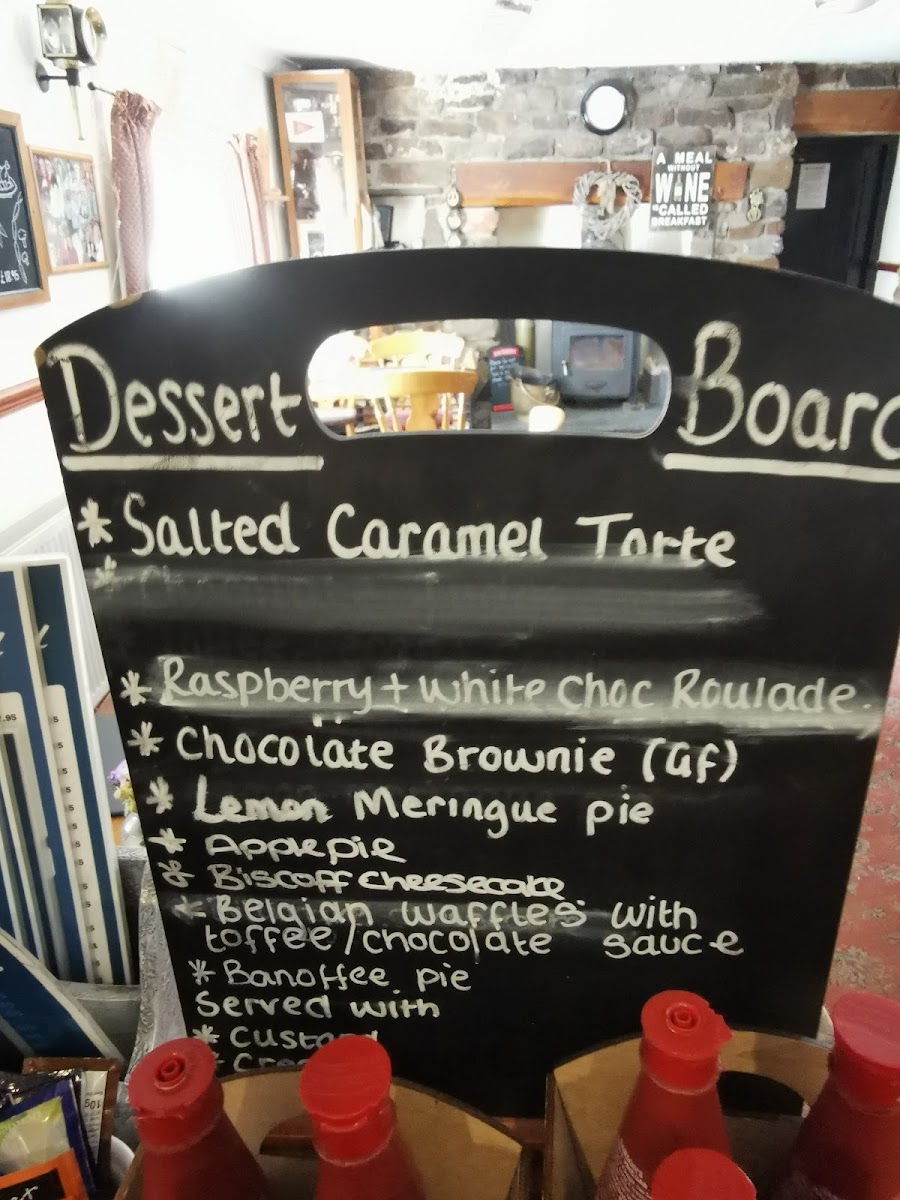 A MEAL
WITHOUT
WINE
IS CALLED
BREAKFAST
Dessert Board
* Salted Caramel Torte
*
* Raspberry + white choc Roulade.
* Chocolate Brownie (GF)
* Lemon Meringue pie
* Apple pie
* Biscoff cheesecake
* Belgian waffles with
toffee/chocolate sauce
* Banoffee pie
Served with
* Custard